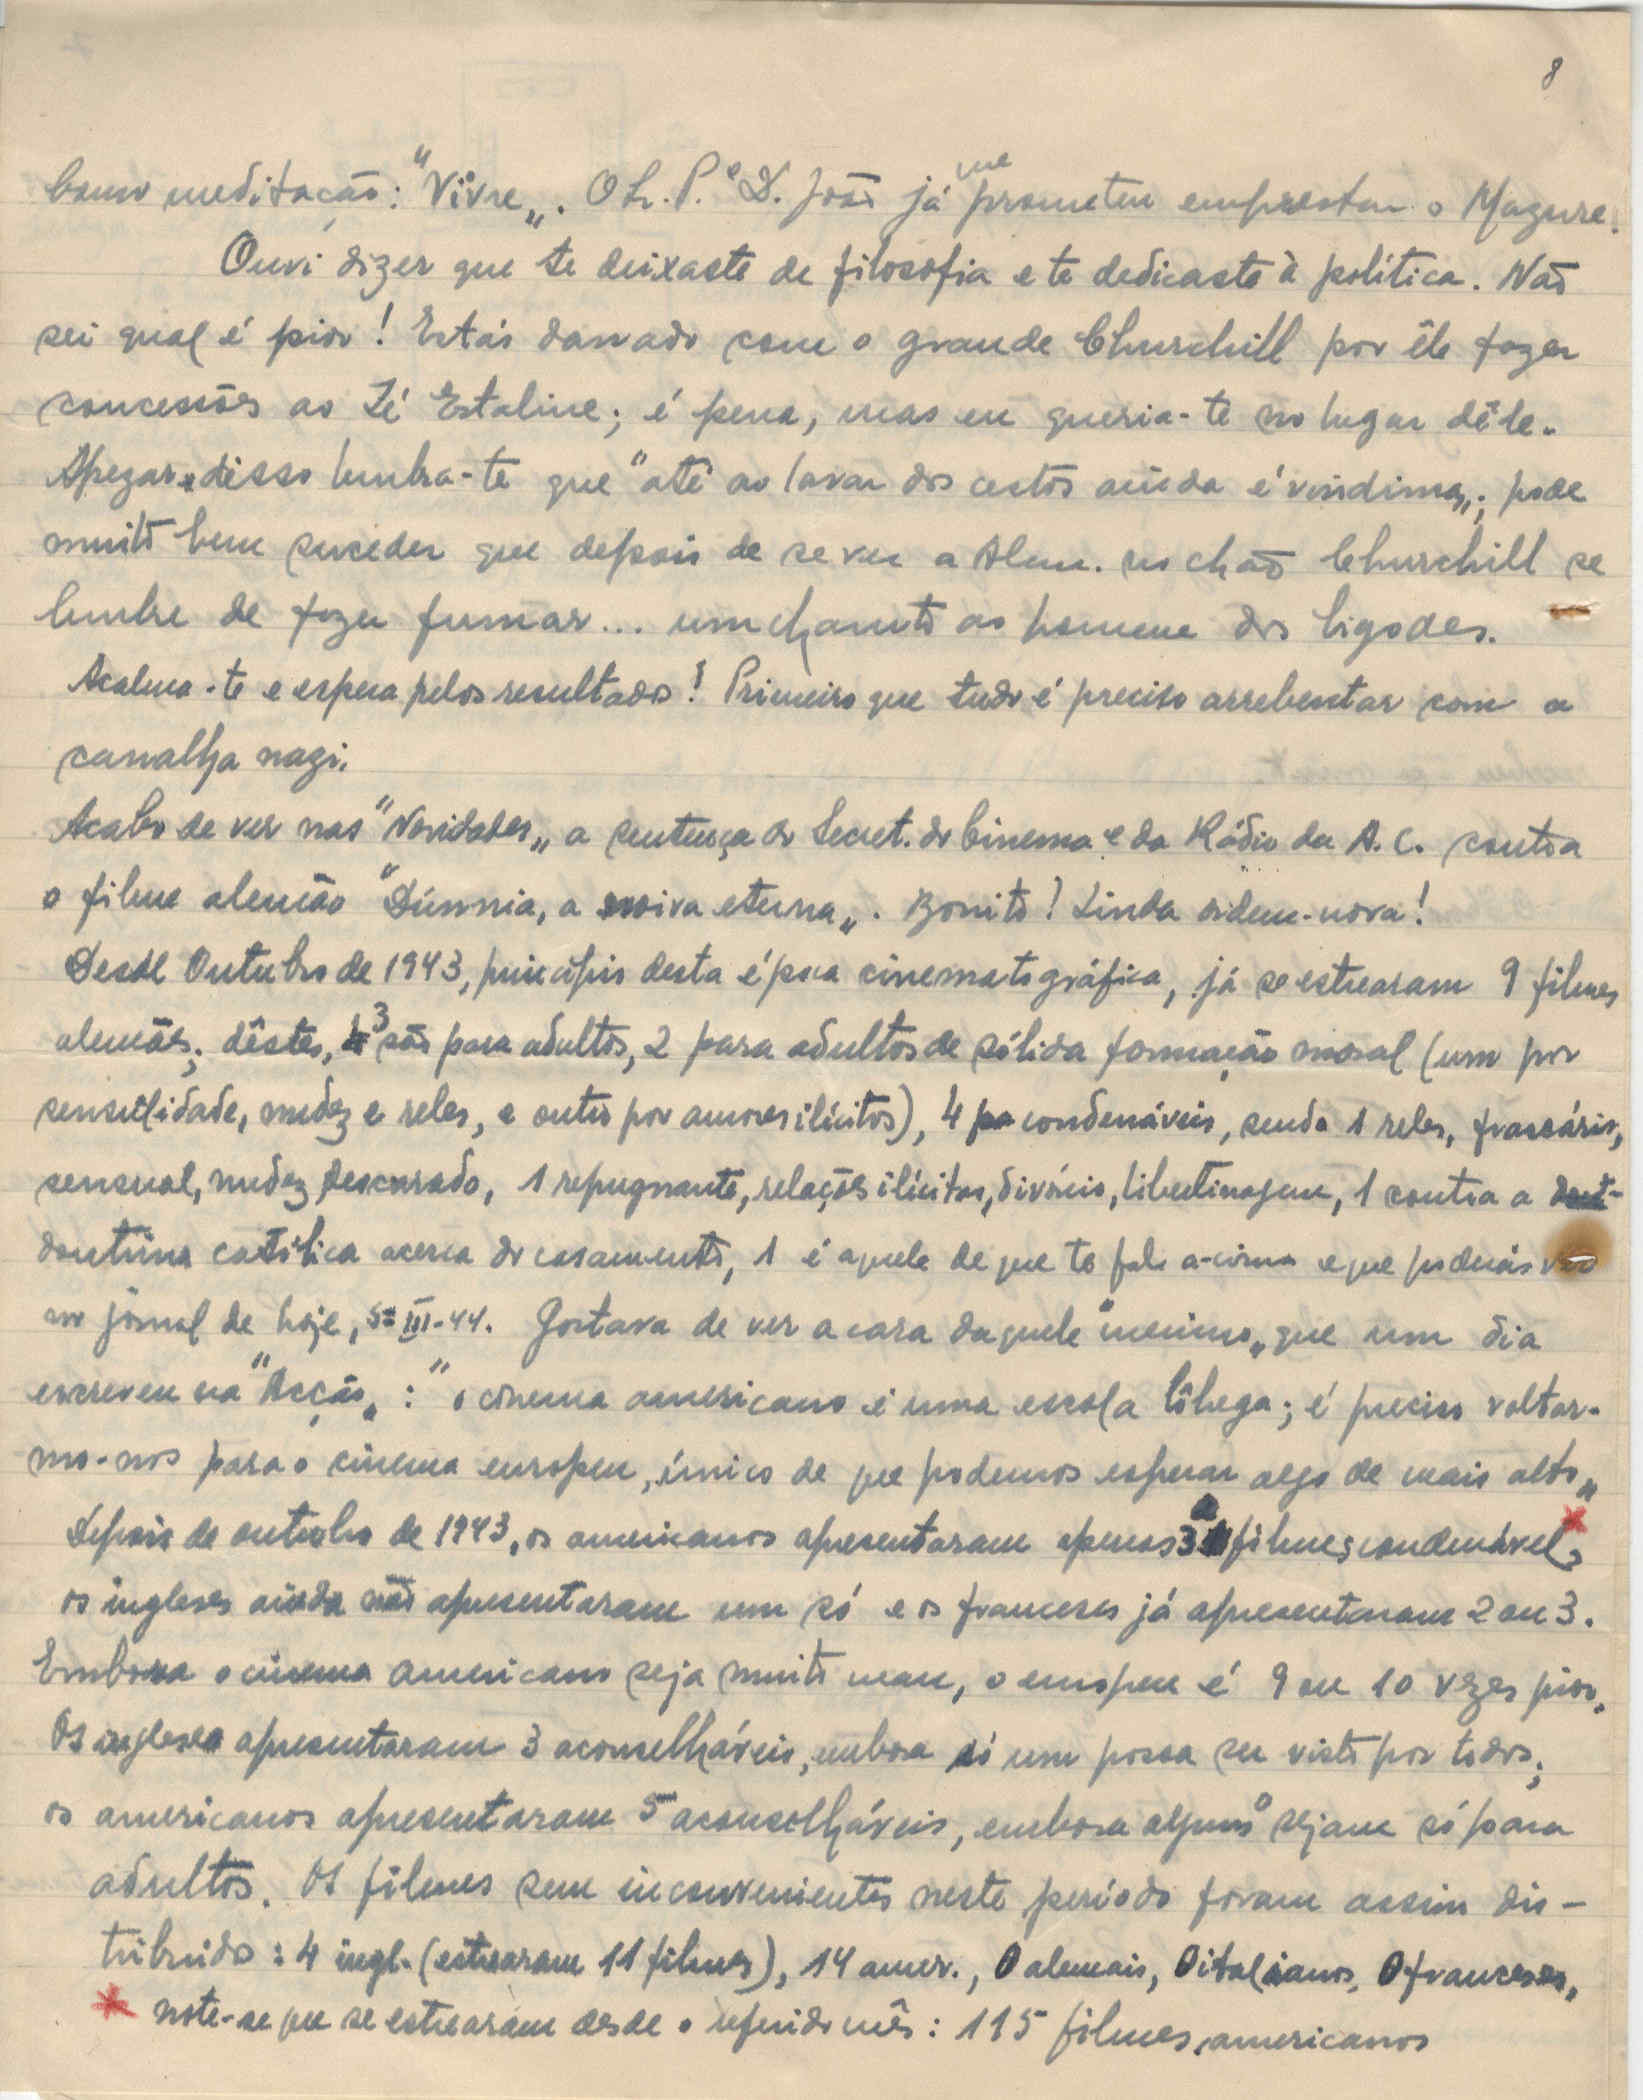 8
como meditação: "Vivre„. O Sr. P.e D. João já me prometeu emprestar o Magure.
Ouvi dizer que te deixaste de filosofia e te dedicaste à política. Não
sei qual é pior! Estás danado com o grande Churchill por êle fazer
concessões ao Zé Estaline; é pena, mas eu queria-te no lugar dêle.
Apezar disso lembra-te que "até ao lavar dos cestos ainda é vindima„; pode
muito bem suceder que depois de se ver a Alem. no chão Churchill se
lembre de fazer fumar... um charuto ao homem dos bigodes.
Acalma-te e espera pelos resultados! Primeiro que tudo é preciso arrebentar com a
canalha nazi.
Acabo de ver nas "Novidades„ a sentença do Secret. do Cinema e da Rádio da A. C. contra
o filme alemão "Dúnnia, a noiva eterna„. Bonito! Linda ordem-nova!
Desde Outubro de 1943, princípio desta época cinematográfica, já se estrearam 9 filmes
alemães; dêstes, 3 são para adultos, 2 para adultos de sólida formação moral (um por
sensualidade, nudez e reles, e outro por amores ilícitos), 4 condenáveis, sendo 1 reles, frascário,
sensual, nudez, descarado, 1 repugnante, relações ilícitas, divórcio, libertinagem, 1 contra a
doutrina católica acerca do casamento, 1 é aquele de que te falo a-cima e que poderás ver
no jornal de hoje, 5-III-44. Gostava de ver a cara daquele "menino„ que um dia
escreveu na "Acção„: "o cinema americano é uma escola lôbrega; é preciso voltar-
mo-nos para o cinema europeu, único de que podemos esperar algo de mais alto„
Depois de outubro de 1943, os americanos apresentaram apenas 3 filmes condenáveis *
os ingleses ainda não apresentaram um só e os franceses já apresentaram 2 ou 3.
Embora o cinema americano seja muito mau, o europeu é 9 ou 10 vezes pior.
Os ingleses apresentaram 3 aconselháveis, embora só um possa ser visto por todos;
os americanos apresentaram 5 aconselháveis, embora alguns sejam só para
adultos. Os filmes sem inconvenientes neste período foram assim dis-
tribuído: 4 ingl. (estrearam 11 filmes), 14 amer., 0 alemais, 0 italianos, 0 franceses.
* note-se que se estrearam desde o referido mês: 115 filmes americanos